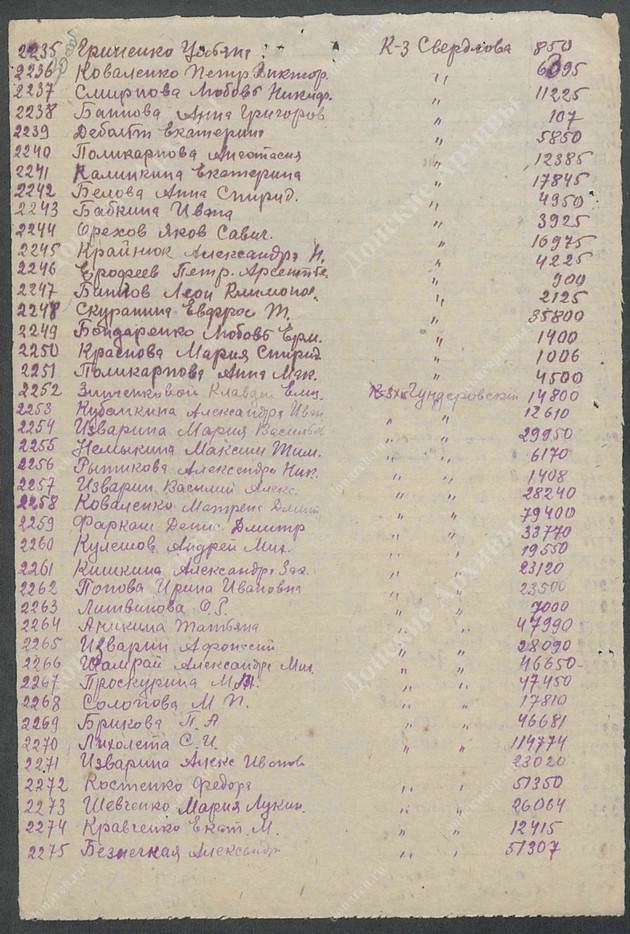 2235 Гриченко Ульяна К-з Свердлова 850
2236 Коваленко Петр Виктор. " 6095
2237 Смирнова Любовь Никиф. " 11225
2238 Баннова Анна Григоров " 107
2239 Дебальт Екатерина " 5850
2240 Поликарпова Анастасия " 12385
2241 Калинкина Екатерина " 17845
2242 Белова Анна Спирид. " 4950
2243 Бабкина Ивана " 3925
2244 Орехов Яков Савич. " 16975
2245 Крайнюк Александра И. " 4225
2246 Ерофеев Петр. " 900
2247 Баннов Леон " 2125
2248 Скуранина Евфрос Т. " 35800
2249 Бондаренко Любовь Ерм. " 1400
2250 Краснова Мария Спирид " 1006
2251 Поликарпова Анна Мак. " 4500
2252 Клавдия Гундоровский 14800
2253 Кубанкина Александра Иван " " 12610
2254 Изварина Мария Василье " " 29950
2255 Немыкина Максим Тим. " " 6170
2256 Рытикова Александра Ник. " " 1408
2257 Изварин Василий Алекс. " " 28240
2258 Коваленко Матрена " " 79400
2259 Фаркаш Денис Дмитр " " 33770
2260 Кулешов Андрей Мих. " " 19550
2261 Кишкина Александра Зах. " " 23120
2262 Попова Ирина Ивановна " " 23500
2263 Литвинова О.Р. " " 7000
2264 Аникина Татьяна " " 47990
2265 Изварин Афонасий " " 28090
2266 Шамрай Александра Мих. " " 46650-
2267 Проскурина " " 47450
2268 Солопова М П. " " 17810
2269 Брикова П. А " " 46681
2270 Лихолета С. И. " " 114774
2271 Изварина Алекс Иванов " " 23020
2272 Костенко Федора " " 51350
2273 Шевченко Мария Лукин. " " 26064
2274 Кравченко Екат. М. " " 12415
2275 Безпечная Александр " " 51307